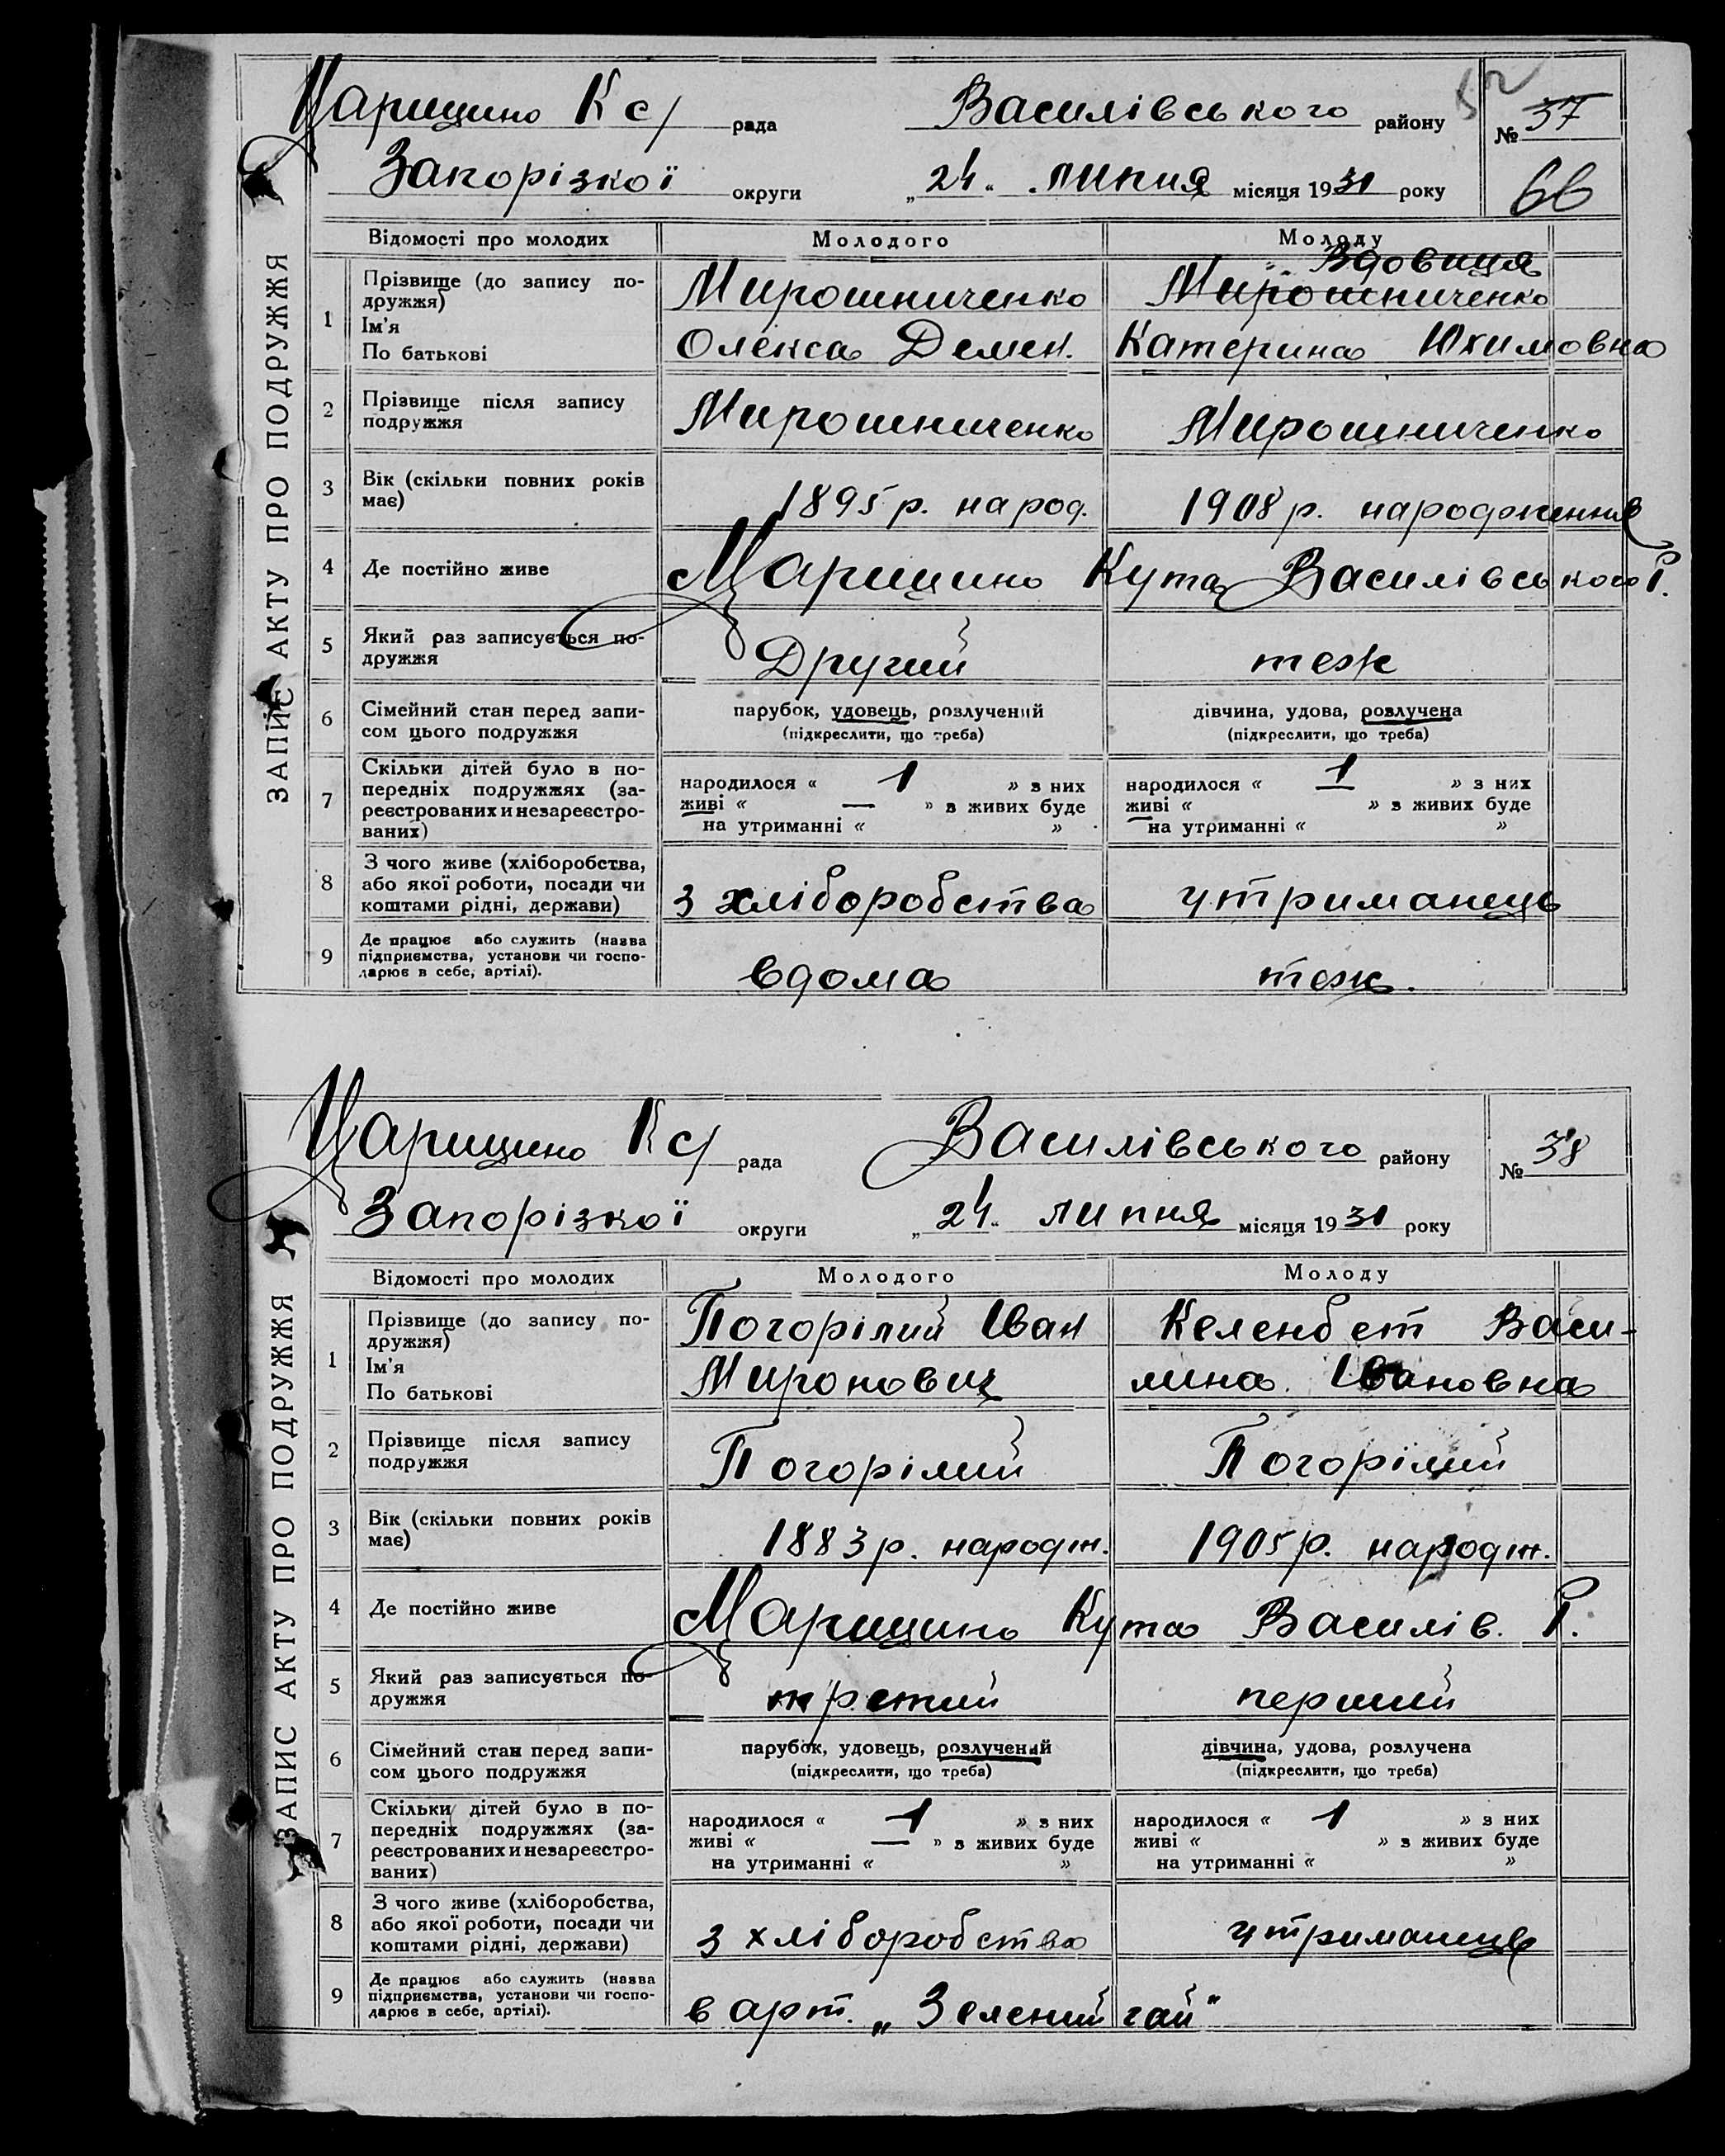 Царицино К с/ рада Василівського району № 37
52
Запорізкої округи „24" липня місяця 1931 року
66
ЗАПИС АКТУ ПРО ПОДРУЖЖЯ
Відомості про молодих Молодого Молоду
1 Прізвище (до запису подружжя) Мирошниченко Вдовиця Мирошниченко
Ім'я
По батькові Олекса Демен. Катерина Юхимовна
2 Прізвище після запису подружжя Мирошниченко Мирошниченко
3 Вік (скільки повних років має) 1895 р. народ. 1908 р. народження
4 Де постійно живе Царицино Кута Василівського Р.
5 Який раз записується подружжя Другий теж
6 Сімейний стан перед записом цього подружжя парубок, удовець, розлучений (підкреслити, що треба) дівчина, удова, розлучена (підкреслити, що треба)
7 Скільки дітей було в попередніх подружжях (зареєстрованих и незареєстрованих) народилося « 1 » з них живі « — » з живих буде на утриманні « » народилося « 1 » з них живі « » з живих буде на утриманні « »
8 З чого живе (хліборобства, або якої роботи, посади чи коштами рідні, держави) з хліборобства утриманець
9 Де працює або служить (назва підприємства, установи чи господарює в себе, артілі). вдома теж.
Царицино К с/ рада Василівського району № 38
Запорізкої округи „24" липня місяця 1931 року
ЗАПИС АКТУ ПРО ПОДРУЖЖЯ
Відомості про молодих Молодого Молоду
1 Прізвище (до запису подружжя) Погорілий Іван Келенбет Васи-
Ім'я
По батькові Миронович лина Івановна
2 Прізвище після запису подружжя Погорілий Погорілий
3 Вік (скільки повних років має) 1883 р. народж. 1905 р. народж.
4 Де постійно живе Царицино Кута Василів. Р.
5 Який раз записується подружжя третий перший
6 Сімейний стан перед записом цього подружжя парубок, удовець, розлучений (підкреслити, що треба) дівчина, удова, розлучена (підкреслити, що треба)
7 Скільки дітей було в попередніх подружжях (зареєстрованих и незареєстрованих) народилося « 1 » з них живі « — » з живих буде на утриманні « » народилося « 1 » з них живі « » з живих буде на утриманні « »
8 З чого живе (хліборобства, або якої роботи, посади чи коштами рідні, держави) з хліборобства утриманець
9 Де працює або служить (назва підприємства, установи чи господарює в себе, артілі). в арт. „Зелений гай"